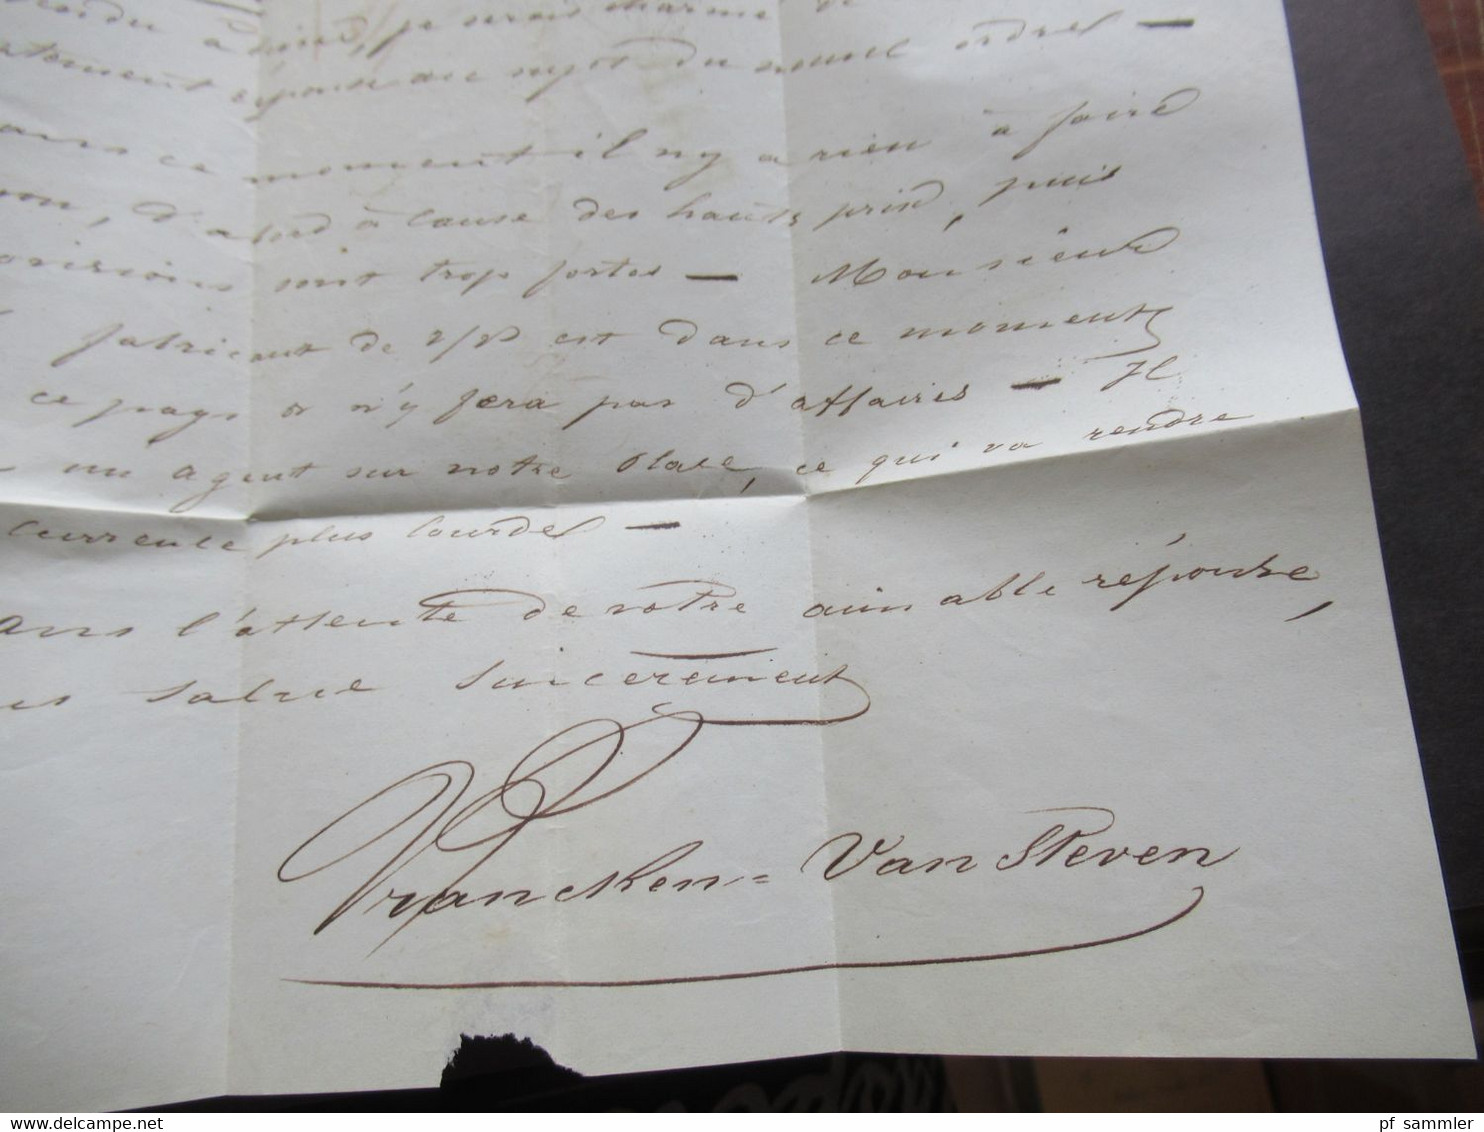 je serais charmé de
réponse au sujet du nouvel ordre —
ce moment il n'y a rien à faire
d'abord à cause des hauts prix, puis
sont trop fortes — Monsieur
fabricant de est dans ce moment
ce pays & n'y fera pas d'affaires — Il
un agent sur notre place, ce qui va rendre
currence plus lourde —
ans l'attente de votre aimable réponse,
us salue sincerement
Vrancken = Van Steven
delcampe.net
pf_sammler